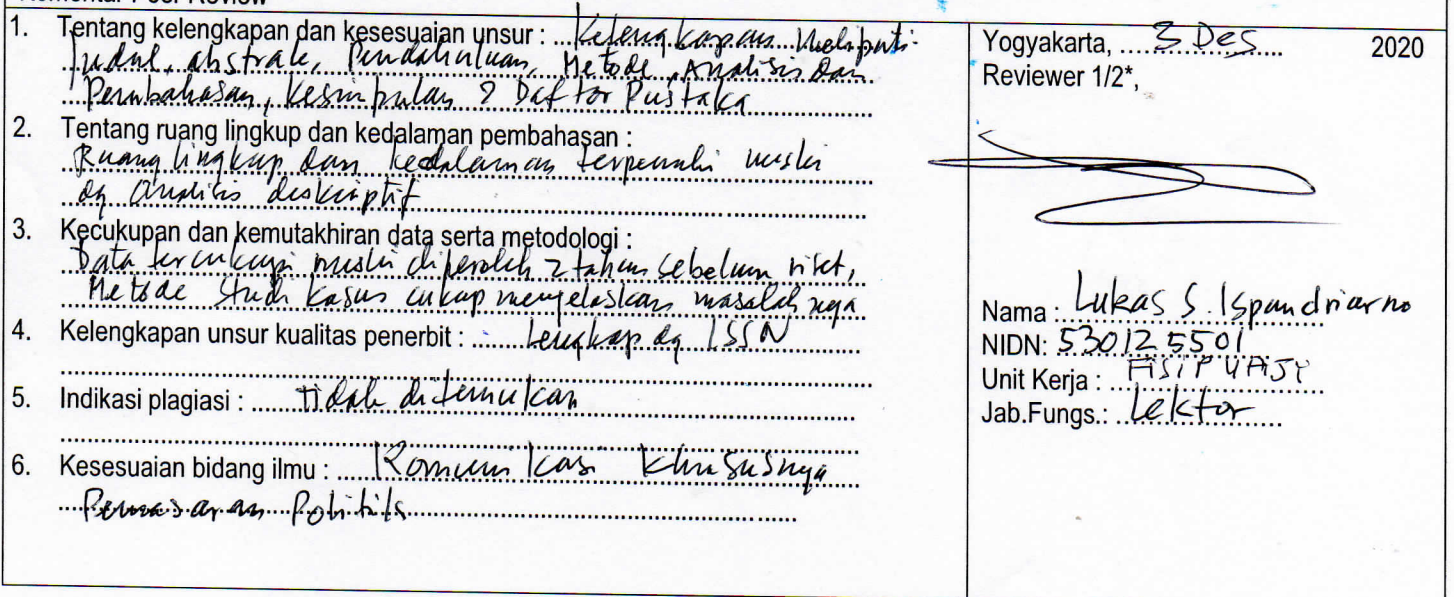 Komentar Peer Review
1. Tentang kelengkapan dan kesesuaian unsur : Kelengkapan meliputi
judul, abstrak, Pendahuluan, Metode, Analisis dan
Pembahasan, Kesimpulan & Daftar Pustaka
2. Tentang ruang lingkup dan kedalaman pembahasan :
Ruang lingkup dan kedalaman terpenuhi meski
dg analisis deskriptif
3. Kecukupan dan kemutakhiran data serta metodologi :
Data tercukupi meski diperoleh 2 tahun sebelum riset,
Metode Studi Kasus cukup menjelaskan masalahnya
4. Kelengkapan unsur kualitas penerbit : Lengkap dg ISSN
5. Indikasi plagiasi : tidak ditemukan
6. Kesesuaian bidang ilmu : Komunikasi khususnya
Pemasaran Politik
Yogyakarta, 3 Des 2020
Reviewer 1/2*,
Nama : Lukas S. Ispandriarno
NIDN: 530125501
Unit Kerja : FISIP UAJY
Jab.Fungs.: Lektor